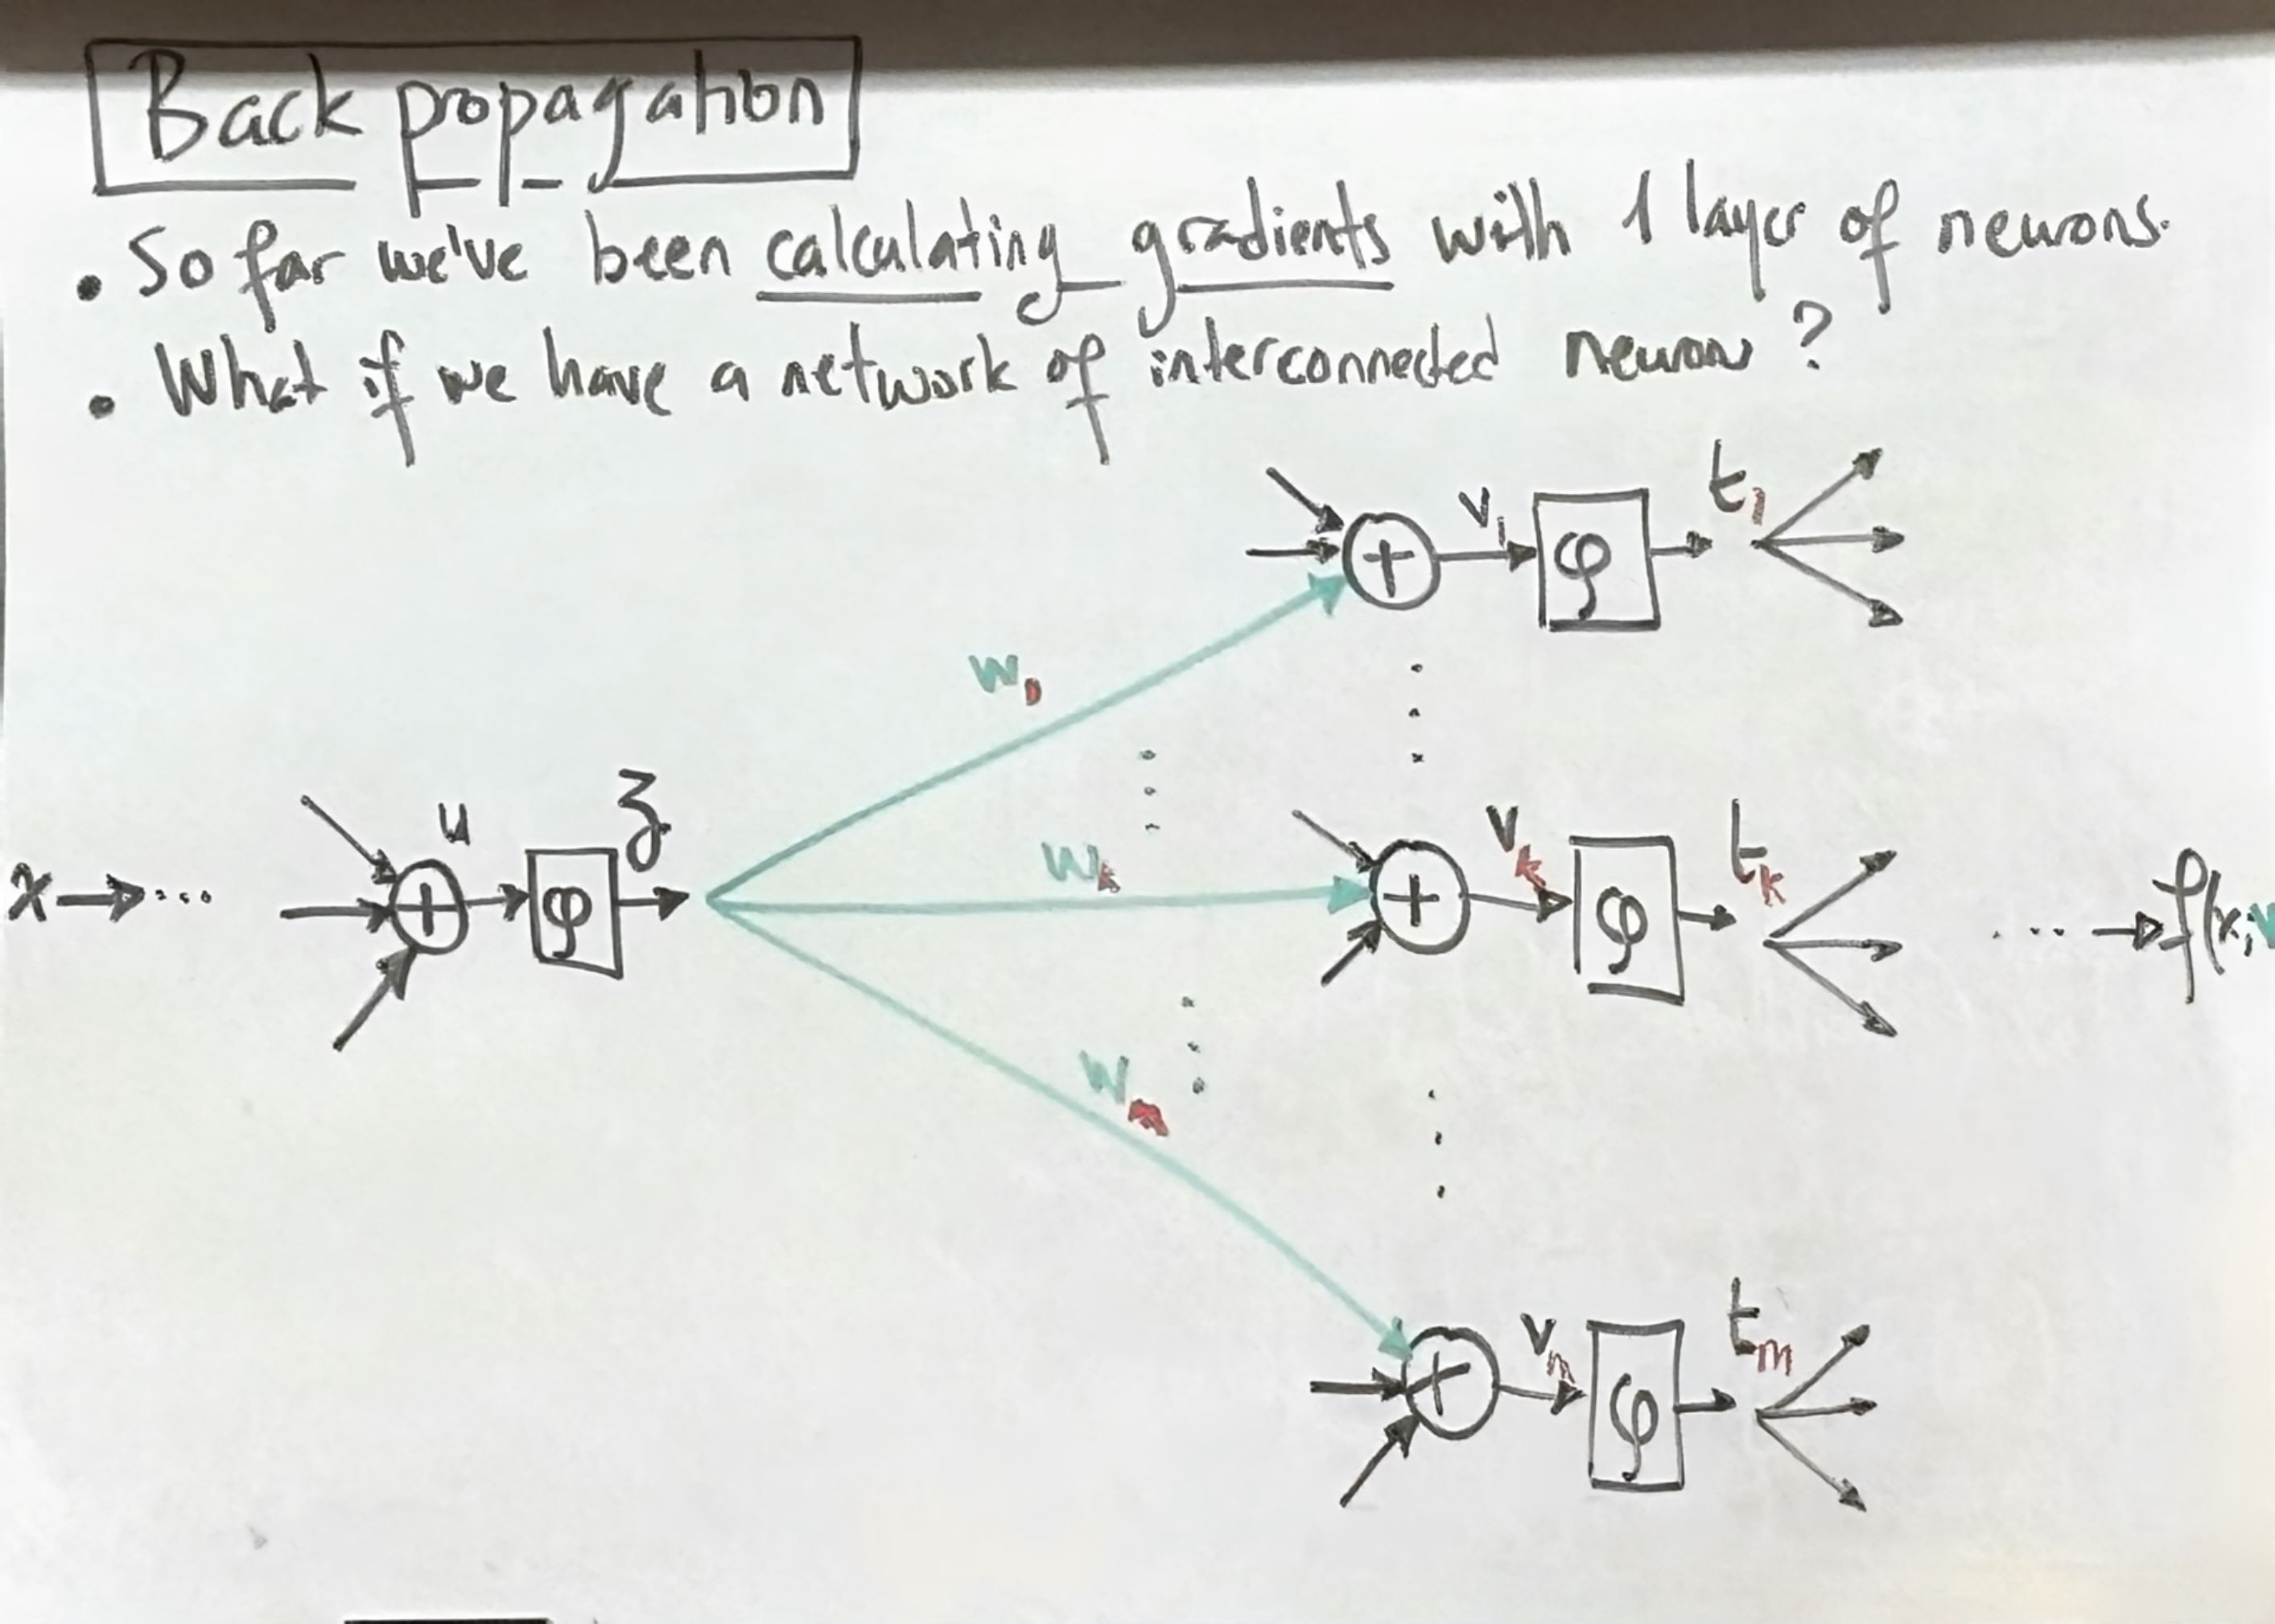 Back propagation
• So far we've been calculating gradients with 1 layer of neurons.
• What if we have a network of interconnected neuron ?
v₁ φ t₁
w₁
x → ... u φ z
w_k
v_k φ t_k
... → f(x; w
w_m
v_m φ t_m